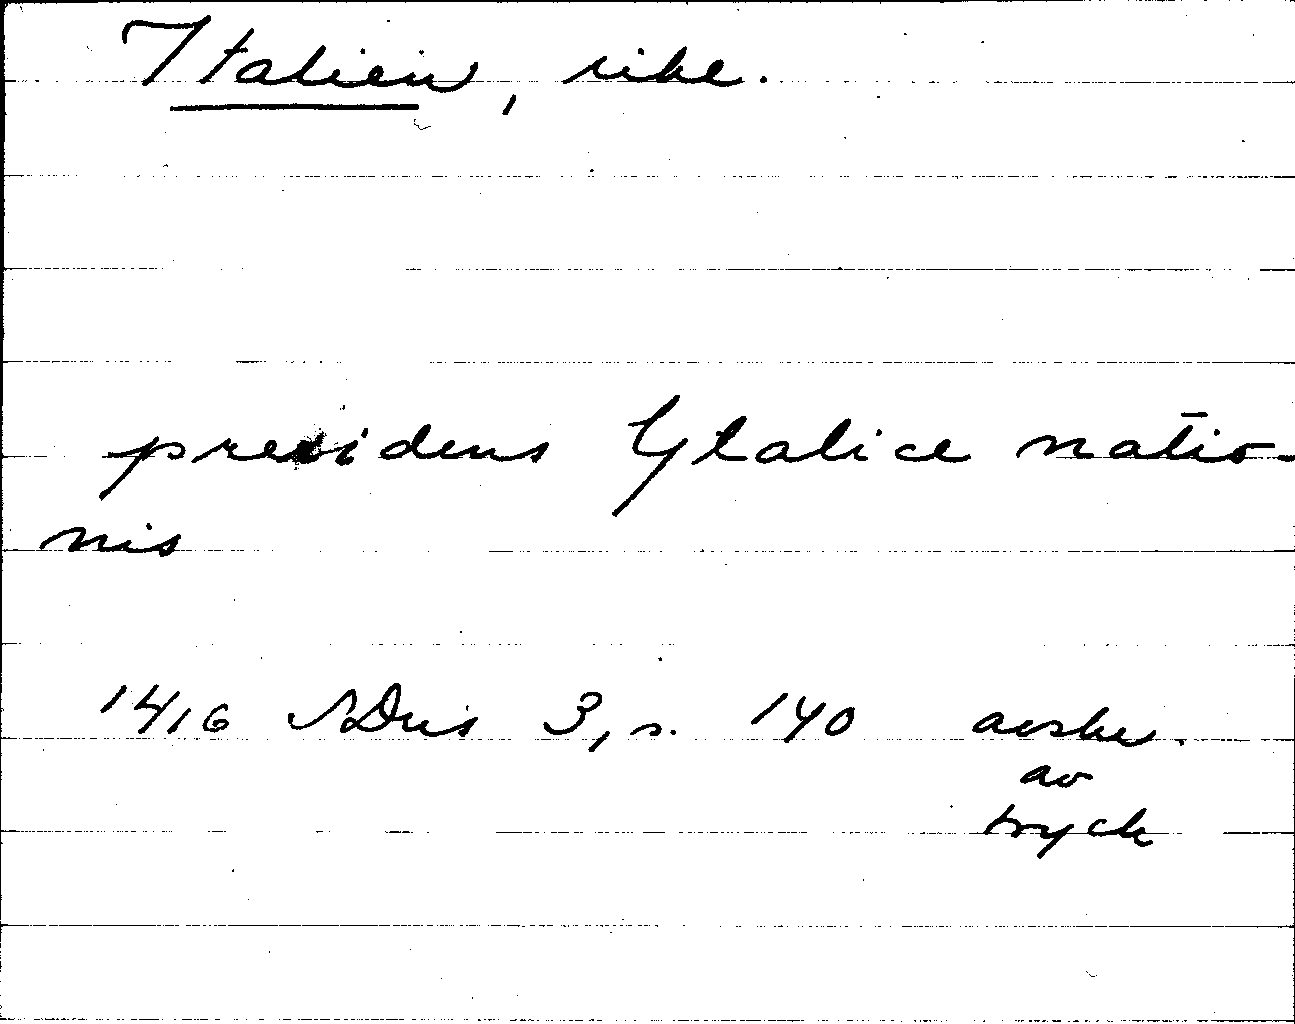 Italien, rike.
presidens Ytalice natio-
nis
1416 SDns 3, s. 140 avskr.
av
tryck